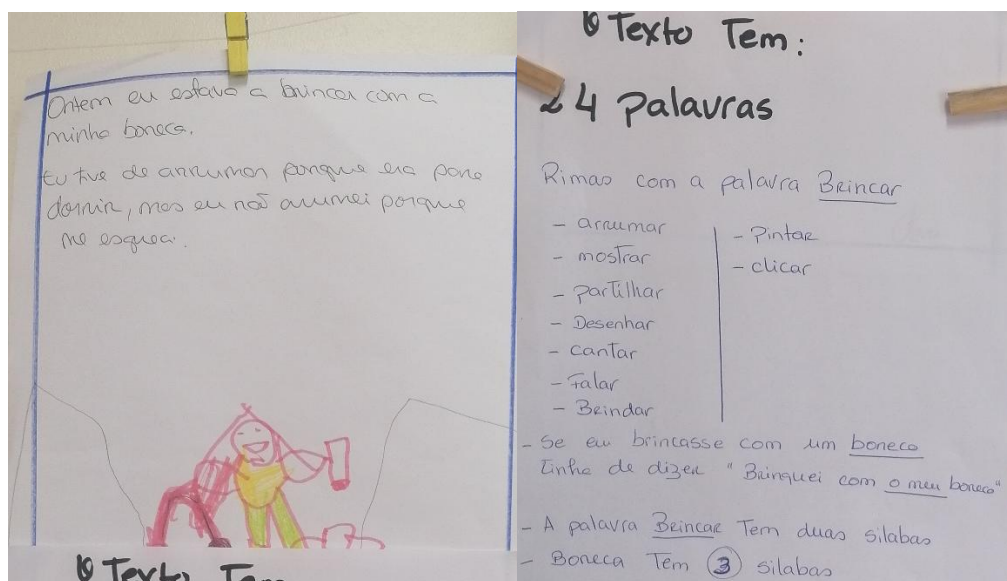 Ontem eu estava a brincar com a
minha boneca.
Eu tive de arrumar porque era para
dormir, mas eu não arrumei porque
me esqueci.
O Texto Tem:
O Texto Tem:
24 palavras
Rimas com a palavra Brincar
- arrumar
- mostrar
- partilhar
- Desenhar
- cantar
- Falar
- Brindar
- Pintar
- clicar
- Se eu brincasse com um boneco
tinha de dizer "Brinquei com o meu boneco"
- A palavra Brincar Tem duas silabas
- Boneca Tem 3 silabas